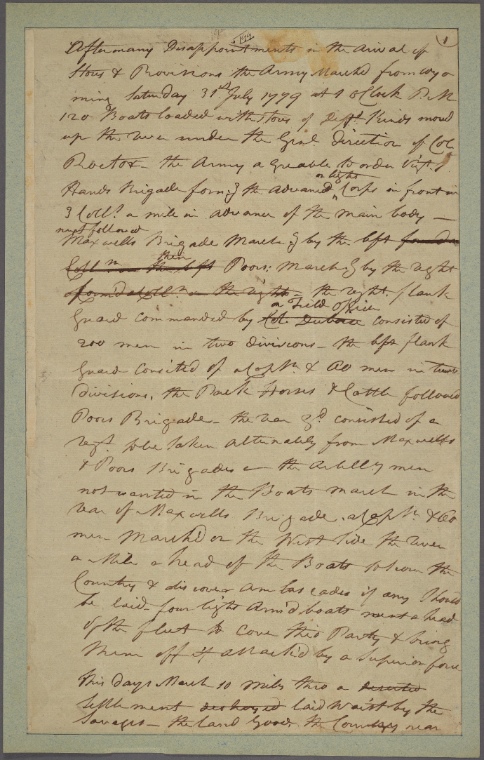 1
After many Disappointments in the arival of
Stores & Provisions the Army March'd from Wyo
ming Saturday 31st July 1779 at 1 oClock P.M
120 Boats loaded with Stores of Difft Kinds moved
up the river under the Genl direction of Col
Proctor - the Army agreable to order Vizt
Hands Brigade form'g the advanced or light Corps in front in
3 Collms a mile in advance of the main body -
next followed
Maxwells Brigade March'g by the left
then Poors; March'g by the right
the right flank
Guard commanded by a Field Officer consisted of
200 men in two divisions - the left flank
Guard consisted of a Capn & 60 men in two
Divisions, the Pack Horses & Cattle followed
Poors Brigade - the rear Gd consisted of a
regt to be taken alternately from Maxwells
& Poors Brigades - the artillery men
not wanted in the Boats march in the
rear of Maxwells Brigade. a Capn & 60
men March'd on the West Side the river
a Mile a head of the Boats to scour the
Country & discover ambuscades if any should
be laid - four light Armd boats went a head
of the fleet to cover this Party & bring
them off if attack'd by a Superior force
This days March 10 Miles thro a deserted
settlement destroyed laid waist by the
Savages - the land Good, the Country near